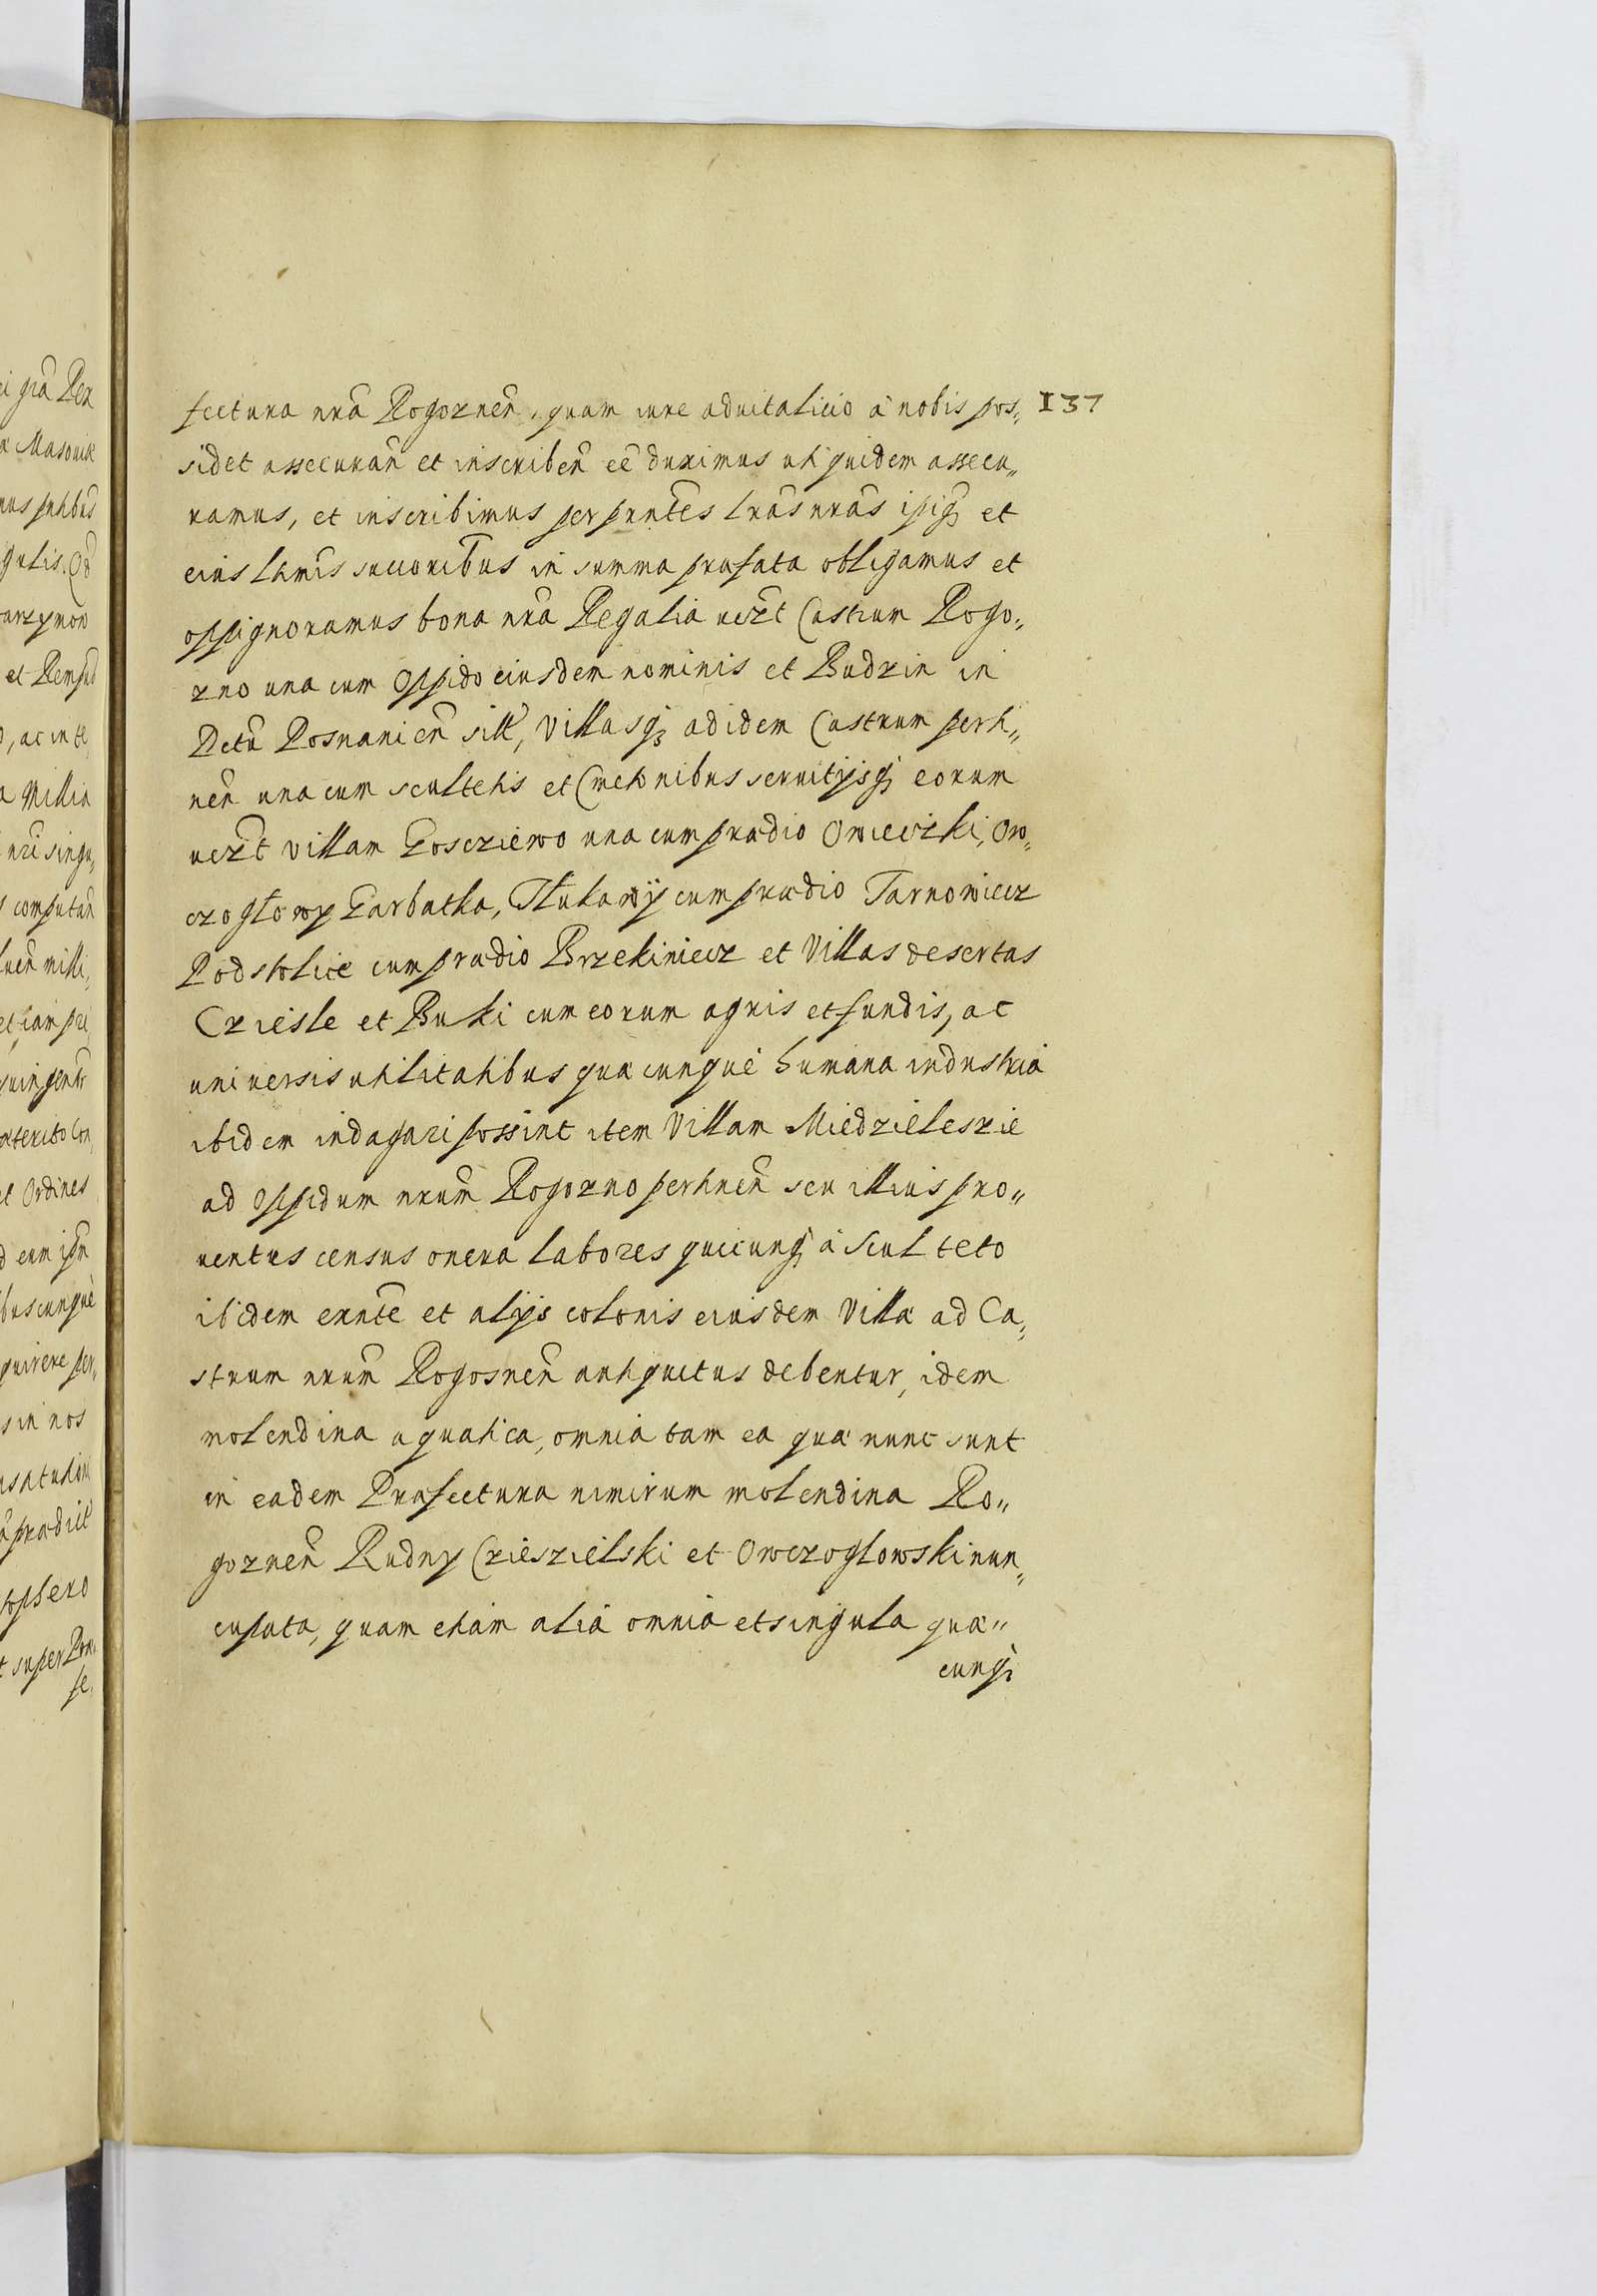 fectura nrã Rogoznen̄. quam iure aduitalicio à nobis pos„ 137
sidet assecuran̄ et inscriben̄ eē duximus uti quidem assecu„
ramus, et inscribimus per prntēs lrās nrās ipiq; et
eius ltmis succoribus in summa præfata obligamus et
oppignoramus bona nrã Regalia uczt Castrum Rogo„
zno una cum Oppido eiusdem nominis et Budzin in
Pctū Posnanien̄ sitt, Villasq; ad idem Castrum perti„
nen̄ una cum scultetis et Cmetonibus seruitijsq; eorum
uczt villam Łosczieẃo una cum prædio Owieczki, Ow„
czogłowy Garbatka, Tłukawÿ cum prædio Tarnowiecz
Podstolice cum prædio Brzekiniecz et Villas desertas
Cziesle et Buki cum eorum agris et fundis, ac
uniuersis utilitatibus quæcunquè humana industria
ibidem indagari possint item Villam Miedzilieskie
ad Oppidum nrum̄ Rogozno pertinen̄ seu illius pro„
uentus census onera labores quicunq; à Sculteto
ibidem exn̄te et alijs colonis eiusdem Villæ ad Ca„
strum nrum̄ Rogosnen̄ antiquitus debentur, idem
molendina aquatica, omnia tam ea quæ nunc sunt
in eadem Præfectura nimirum molendina Ro„
goznen̄ Rudny Czieszielski et Owczoglowski nun„
cupata, quam etiam alia omnia et singula quæ„
cunq;